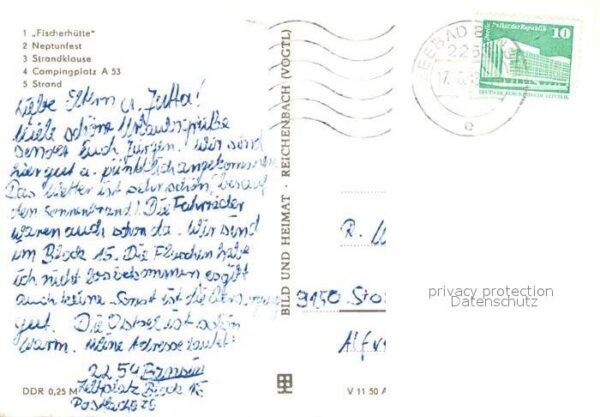 1 „Fischerhütte"
2 Neptunfest
3 Strandklause
4 Campingplatz A 53
5 Strand
Liebe Eltern u. Jutta!
Viele schöne Urlaubsgrüße
sendet Euch Jürgen. Wir sind
hier gut u. pünktlich angekommen.
Das Wetter ist sehr schön, bis auf
den Sonnenbrand! Die Fahrräder
waren auch schon da. Wir sind
im Block 15. Die Flundern habe
ich nicht bekommen es gibt
auch keine. Sonst ist die
gut. Die Ostsee ist schön
warm. Meine Adresse lautet:
2254
Zeltplatz Block 15
Postfach
DDR 0,25 M
BILD UND HEIMAT · REICHENBACH (VOGTL)
V 11 50 A
SEEBAD
225
17.
e
10
Palast der Republik
DEUTSCHE DEMOKRATISCHE REPUBLIK
R.
9150 Sto
Alfr
privacy protection
Datenschutz